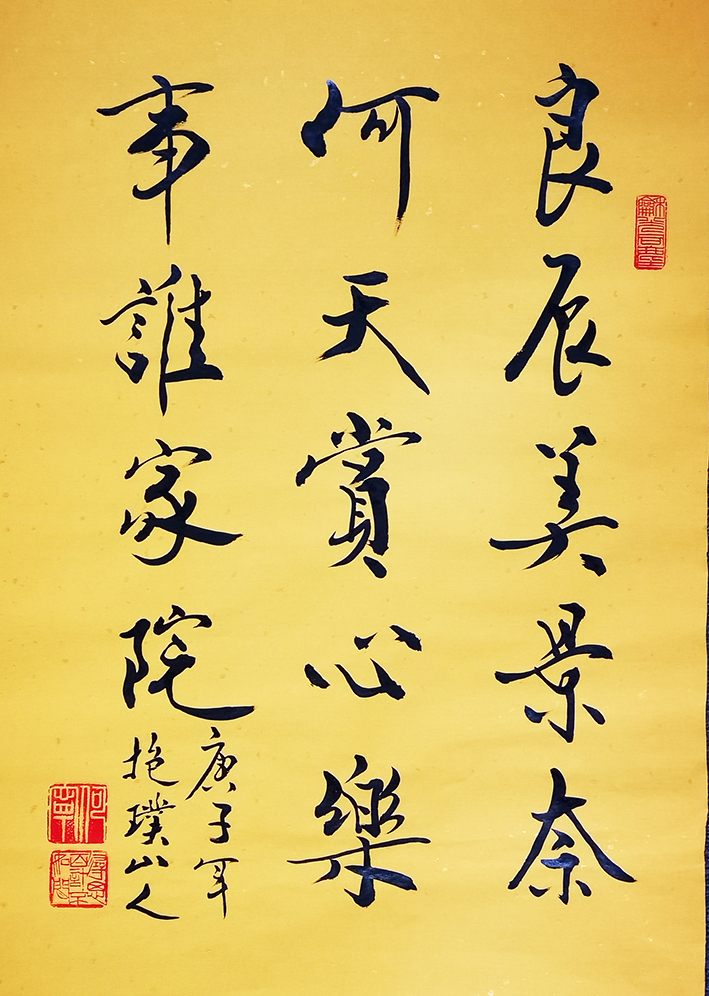 良辰美景奈
何天賞心樂
事誰家院
庚子年
抱璞山人